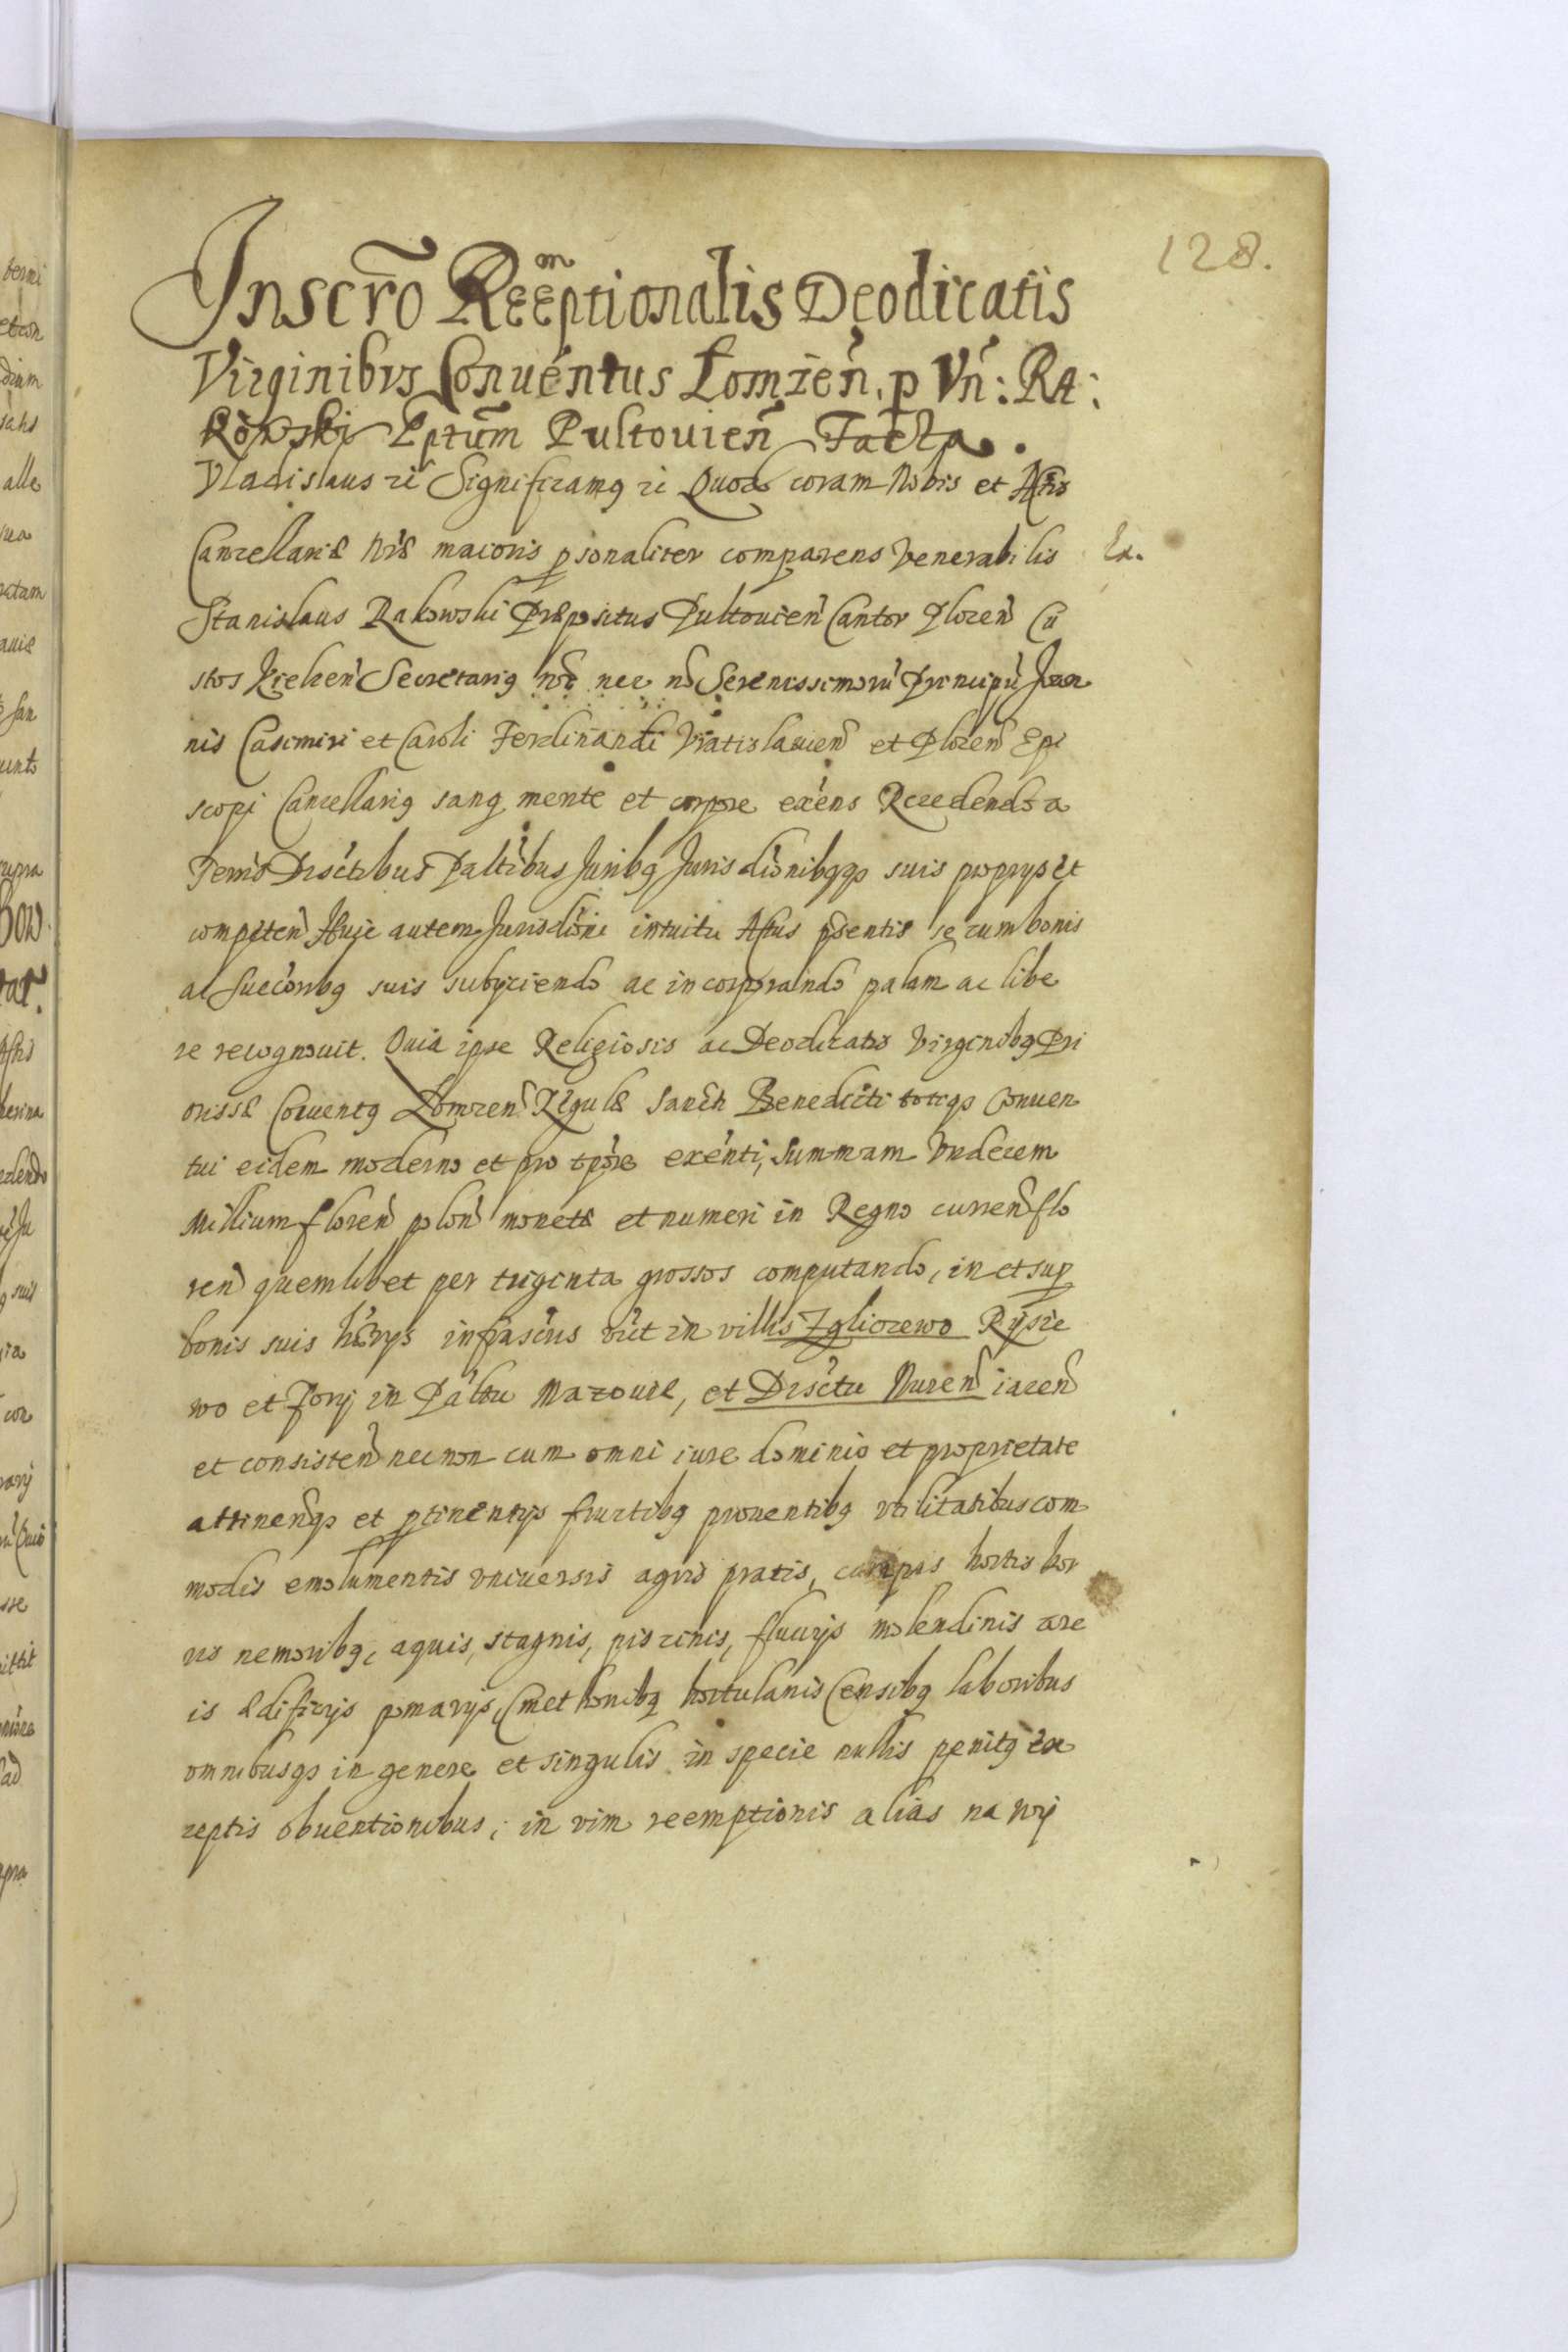 128.
Inscr̃o Reemptionalis Deodicatis
Virginibus Conuentus Lomzen̄. p Vn̄: Ra:
kowski Pptum Pultouien̄ Facta.
Vladislaus zc Significamq zc Quod coram Nobis et Actis
Cancellariæ nr̃æ maioris psonaliter comparens Venerabilis
Ex.
Stanislaus Rakowski Præpositus Pultouien̄ Cantor Plocen̄ Cu
stos Kielcen̄ Secretariq nr̃ nec nō Serenissimorū Principū Joan
nis Casimiri et Caroli Ferdinandi Vratislauien̄ et Plocen̄ Epi
scopi Cancellariq sanq mente et corpore exēns Recedendo a
Terris Disctibus Paltibus Juribq Jurisdionibqqs suis proprys et
competen̄ Huic autem Jurisdioni intuitu Actus pseentis se cum bonis
ac Succoribq suis subyciendo ac incorporando palam ac libe
re recognouit. Quia ipse Religiosis ac Deodicatis Virginibq Pri
orissæ Conuentq Lomzen̄ Regulæ Sancti Benedicti totiqs Conuen
tui eidem moderno et pro tpore exēnti, Summam Vndecem
Millium floren̄ polon̄ monetæ et numeri in Regno curren̄ flo
ren̄ quemlibet per triginta grossos computando, in et sup
bonis suis hærys infrascris vict in villis Zgliczewo Rysie
wo et Jory in Paltu Mazouiæ, et Disctu Nuren̄ iacen̄
et consisten̄ necnon cum omni iure dominio et proprietate
attinen̄qs et ptinentys fructibq prouentibq vtilitatibus com
modis emolumentis vniuersis agris pratis, campis hortis hor
reis nemoribq, aquis, stagnis, piscinis, fluuys molendinis are
is ædificys pomarys, Cmethonibq hortulanis Censibq laboribus
omnibusqs in genere et singulis in specie nullis penitq ex
ceptis obuentionibus, in vim reemptionis alias na wy